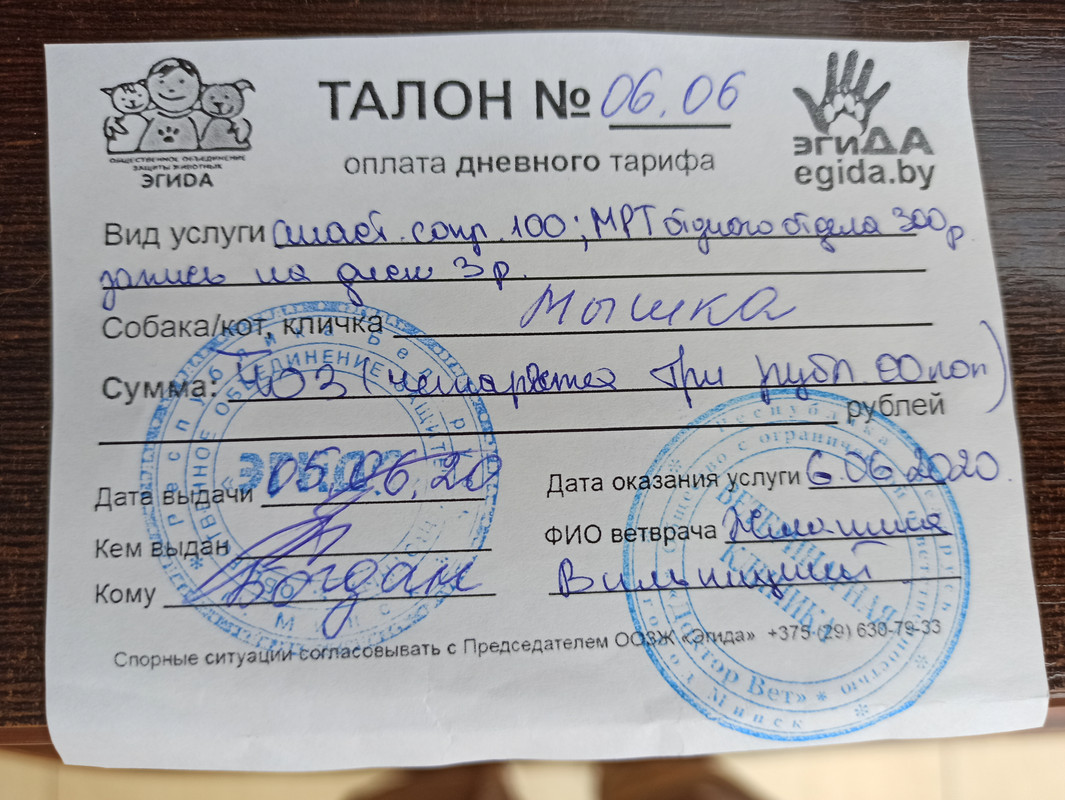 ОБЩЕСТВЕННОЕ ОБЪЕДИНЕНИЕ
ЗАЩИТЫ ЖИВОТНЫХ
ЭГИДА
ТАЛОН № 06.06
оплата дневного тарифа
ЭГИДА
egida.by
Вид услуги 100; МРТ одного отдела 300 р
запись на 3 р.
Собака/кот, кличка Мышка
Сумма: 403 (четыреста три рубл 00 коп)
рублей
Дата выдачи 05.06.20
Дата оказания услуги 6.06.2020
Кем выдан
ФИО ветврача
Кому Богдан
Спорные ситуации согласовывать с Председателем ООЗЖ «Эгида» +375 (29) 630-79-33
«ЭГИДА»
Республика Беларусь
ОБЪЕДИНЕНИЕ ЗАЩИТЫ
Минск
Республика Беларусь
Общество с ограниченной ответственностью
ВЕТЕРИНАРНАЯ
КЛИНИКА
«Доктор Вет»
город Минск